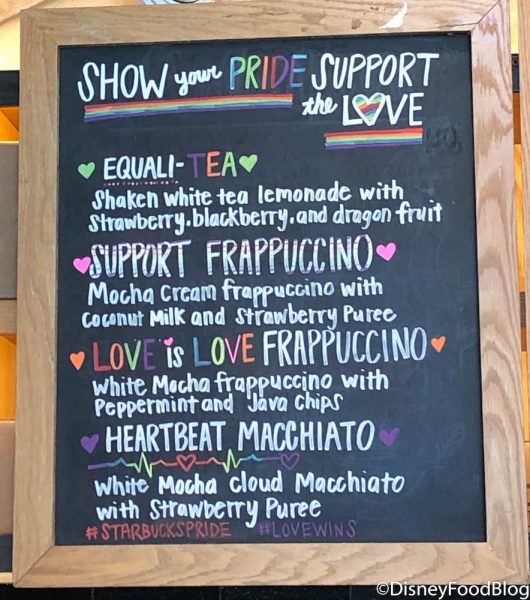 SHOW your PRIDE SUPPORT
the LOVE
EQUALI-TEA
Shaken white tea lemonade with
Strawberry, blackberry, and dragon fruit
SUPPORT FRAPPUCCINO
Mocha Cream frappuccino with
Coconut Milk and Strawberry Puree
LOVE is LOVE FRAPPUCCINO
White Mocha frappuccino with
Peppermint and Java Chips
HEARTBEAT MACCHIATO
White Mocha Cloud Macchiato
with Strawberry Puree
#STARBUCKSPRIDE #LOVEWINS
©DisneyFoodBlog